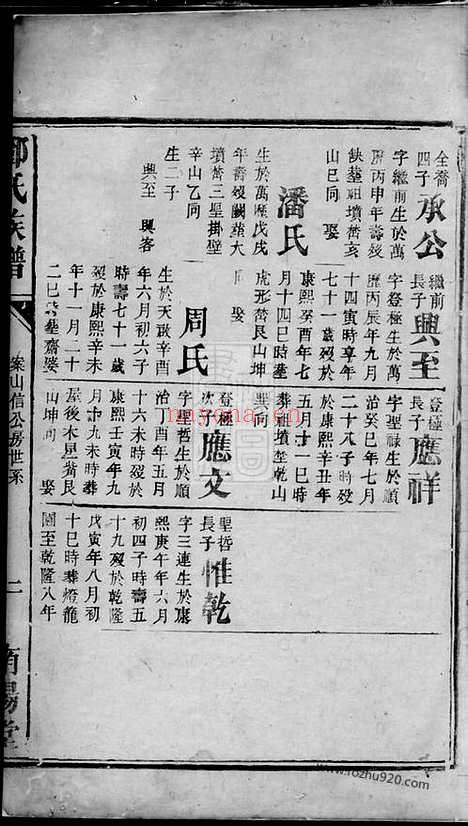 全喬
四子
承公
字繼前生於萬
曆丙申年壽歿
缺塟祖墳嵜亥
山巳向　娶
潘氏
生於萬曆戊戌
年嵜歿闕塟大
墳嵜三星掛壁
辛山乙向
生二子
興至　興客
繼前
長子
興至
字登極生於萬
曆丙辰年九月
十四寅時享年
七十一歲歿於
康熙癸酉年七
月十四巳時塟
虎形嵜艮山坤
向　娶
周氏
生於天啟辛酉
年六月初六子
時壽七十一歲
歿於康熙辛未
年十一月二十
登極
長子
應祥
字聖祿生於順
治癸巳年七月
二十八子時歿
於康熙辛丑年
五月十一巳時
葬塟墳乾山
巽向
登極
次子
應文
字聖哲生於順
治丁酉年五月
十六未時歿於
康熙壬寅年九
月十九未時葬
屋後木星嵜艮
山坤向　娶
聖哲
長子
惟乾
字三連生於康
熙庚午年六月
初四子時壽五
十九歿於乾隆
戊寅年八月初
十巳時葬燈龍
圖至乾隆八年
氏族譜
案山信公房世系
二
南陽堂
nayona.cn
www.rozhu920.com